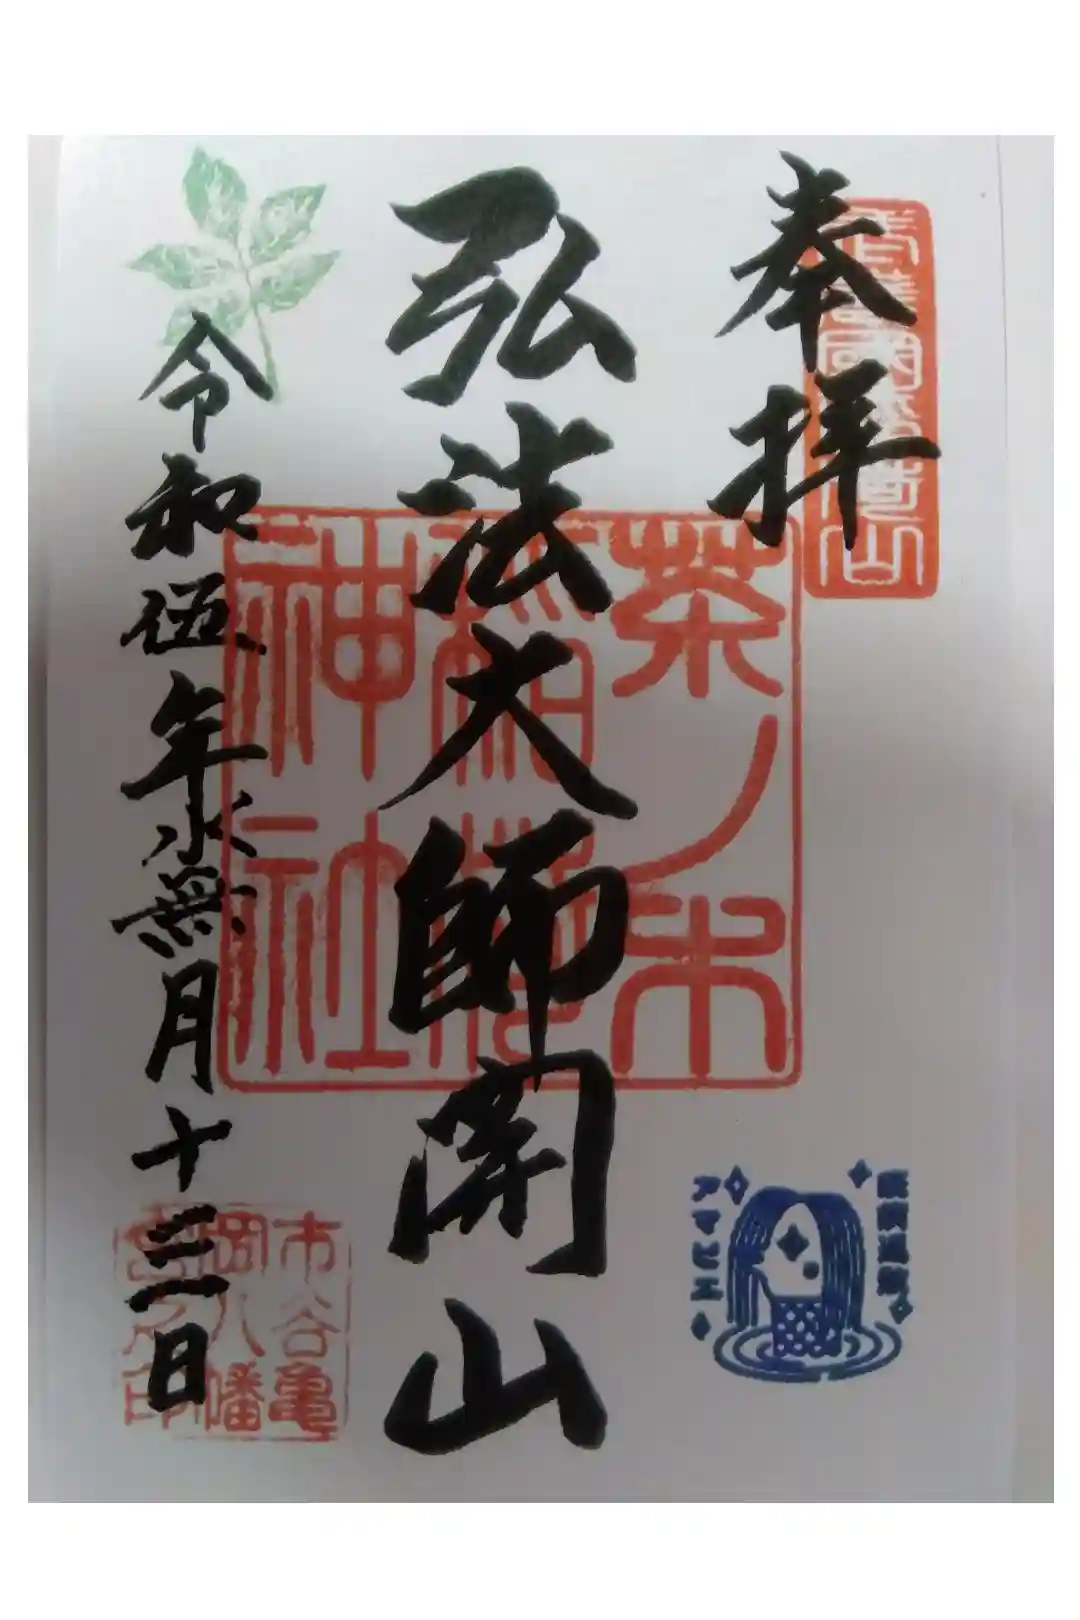 奉拝
弘法大師開山
茶ノ木
稲荷
神社
令和伍年水無月十三日
市谷亀
岡八幡
宮之印
アマビエ